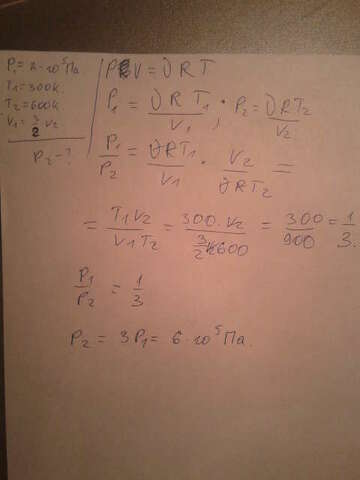 P₁ = 2·10⁵ Па.
T₁ = 300K.
T₂ = 600K.
V₁ = 3/2 V₂.
P₂ - ?
PV = νRT
P₁ = νRT₁/V₁ ; P₂ = νRT₂/V₂
P₁/P₂ = νRT₁/V₁ · V₂/νRT₂ =
= T₁V₂/V₁T₂ = 300·V₂/(3/2 V₂ 600) = 300/900 = 1/3.
P₁/P₂ = 1/3
P₂ = 3P₁ = 6·10⁵ Па.